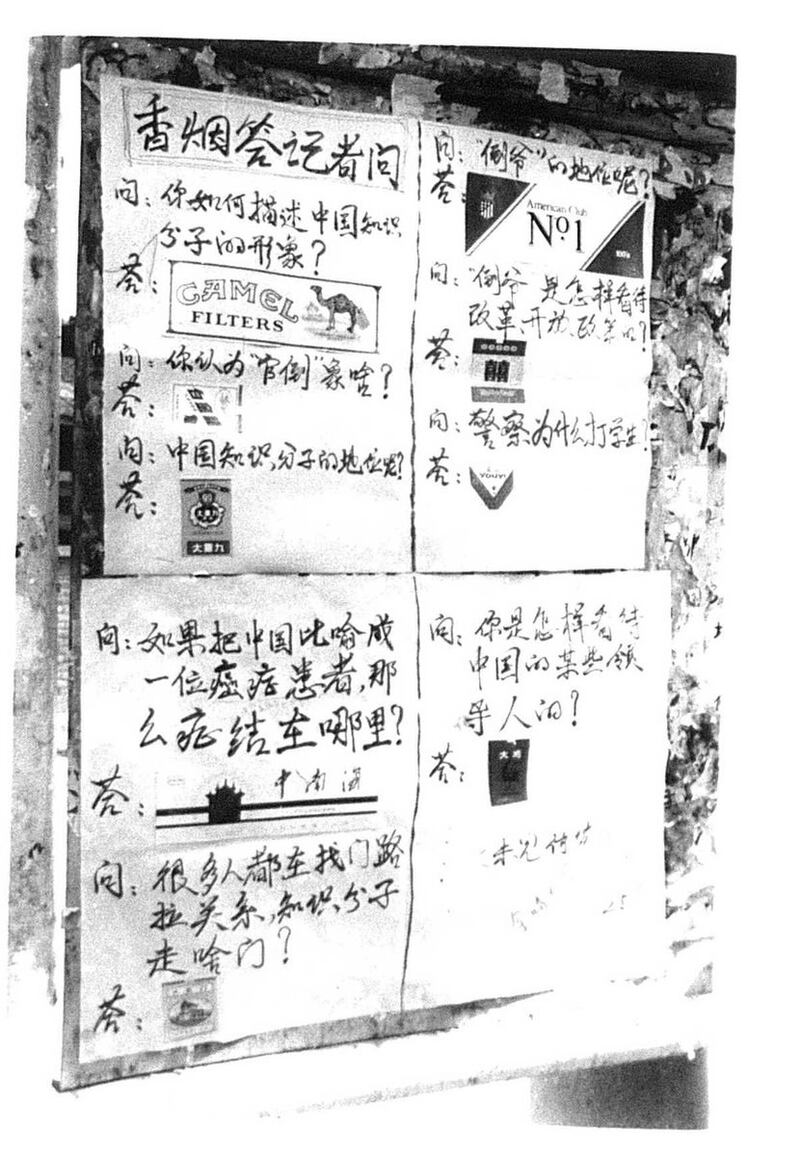 香烟答记者问
问：你如何描述中国知识
分子的形象？
答：
CAMEL
FILTERS
问：你认为“官倒”象啥？
答：
问：中国知识分子的地位呢？
答：
大重九
问：“倒爷”的地位呢？
答：
American Club
No1
100's
问：“倒爷”是怎样看待
改革、开放、改革的？
答：
囍
问：警察为什么打学生？
答：
YOUYI
问：如果把中国比喻成
一位癌症患者，那
么症结在哪里？
答：
中南海
问：很多人都在找门路
拉关系，知识分子
走啥门？
答：
问：你是怎样看待
中国的某些领
导人的？
答：